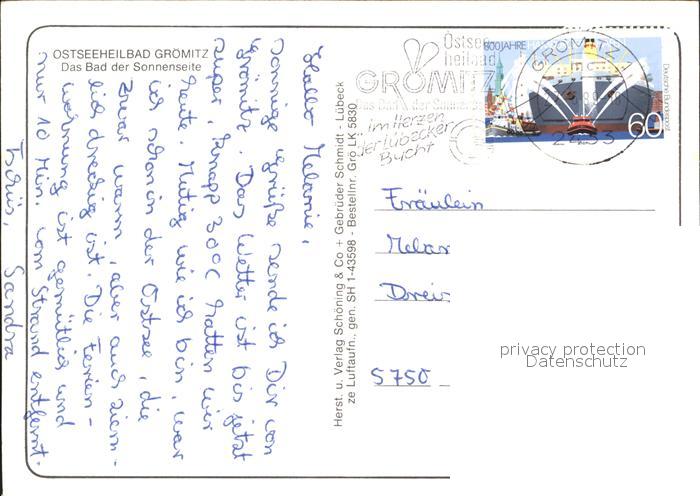 OSTSEEHEILBAD GRÖMITZ
Das Bad der Sonnenseite
Hallo Melanie,
sonnige Grüße sende ich Dir von
Grömitz. Das Wetter ist bis jetzt
super, knapp 30°C hatten wir
heute. Mutig wie ich bin, war
ich schon in der Ostsee, die
zwar warm, aber auch ziem-
lich dreckig ist. Die Ferien-
wohnung ist gemütlich und
nur 10 Min. vom Strand entfernt.
Tschüs,
Sandra
Herst. u. Verlag Schöning & Co + Gebrüder Schmidt - Lübeck
ze Luftaufn., gen. SH 1-43598 - Bestellnr. Grö LK 5830
Ostsee
heilbad
GRÖMITZ
Das Bad der Sonnenseite
im Herzen
der Lübecker
Bucht
800 JAHRE
GRÖMITZ
2433
Deutsche Bundespost
60
Fräulein
Melan
Drei
5750
privacy protection
Datenschutz